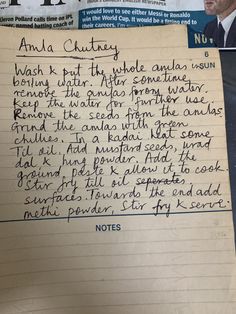 Kieron Pollard calls time on IPL
was named batting coach of
I would love to see either Messi or Ronaldo
win the World Cup. It would be a fitting end to
their careers, I'm
NEWSPAPER
NOV
6
SUN
Amla Chutney
Wash & put the whole amlas in
boiling water. After sometime,
remove the amlas from water.
Keep the water for further use.
Remove the seeds from the amlas,
Grind the amlas with green
chillies. In a kadai heat some
Til oil. Add mustard seeds, urad
dal & hing powder. Add the
ground paste & allow it to cook.
Stir fry till oil seperates
surfaces. Towards the end add
methi powder, Stir fry & serve.
NOTES